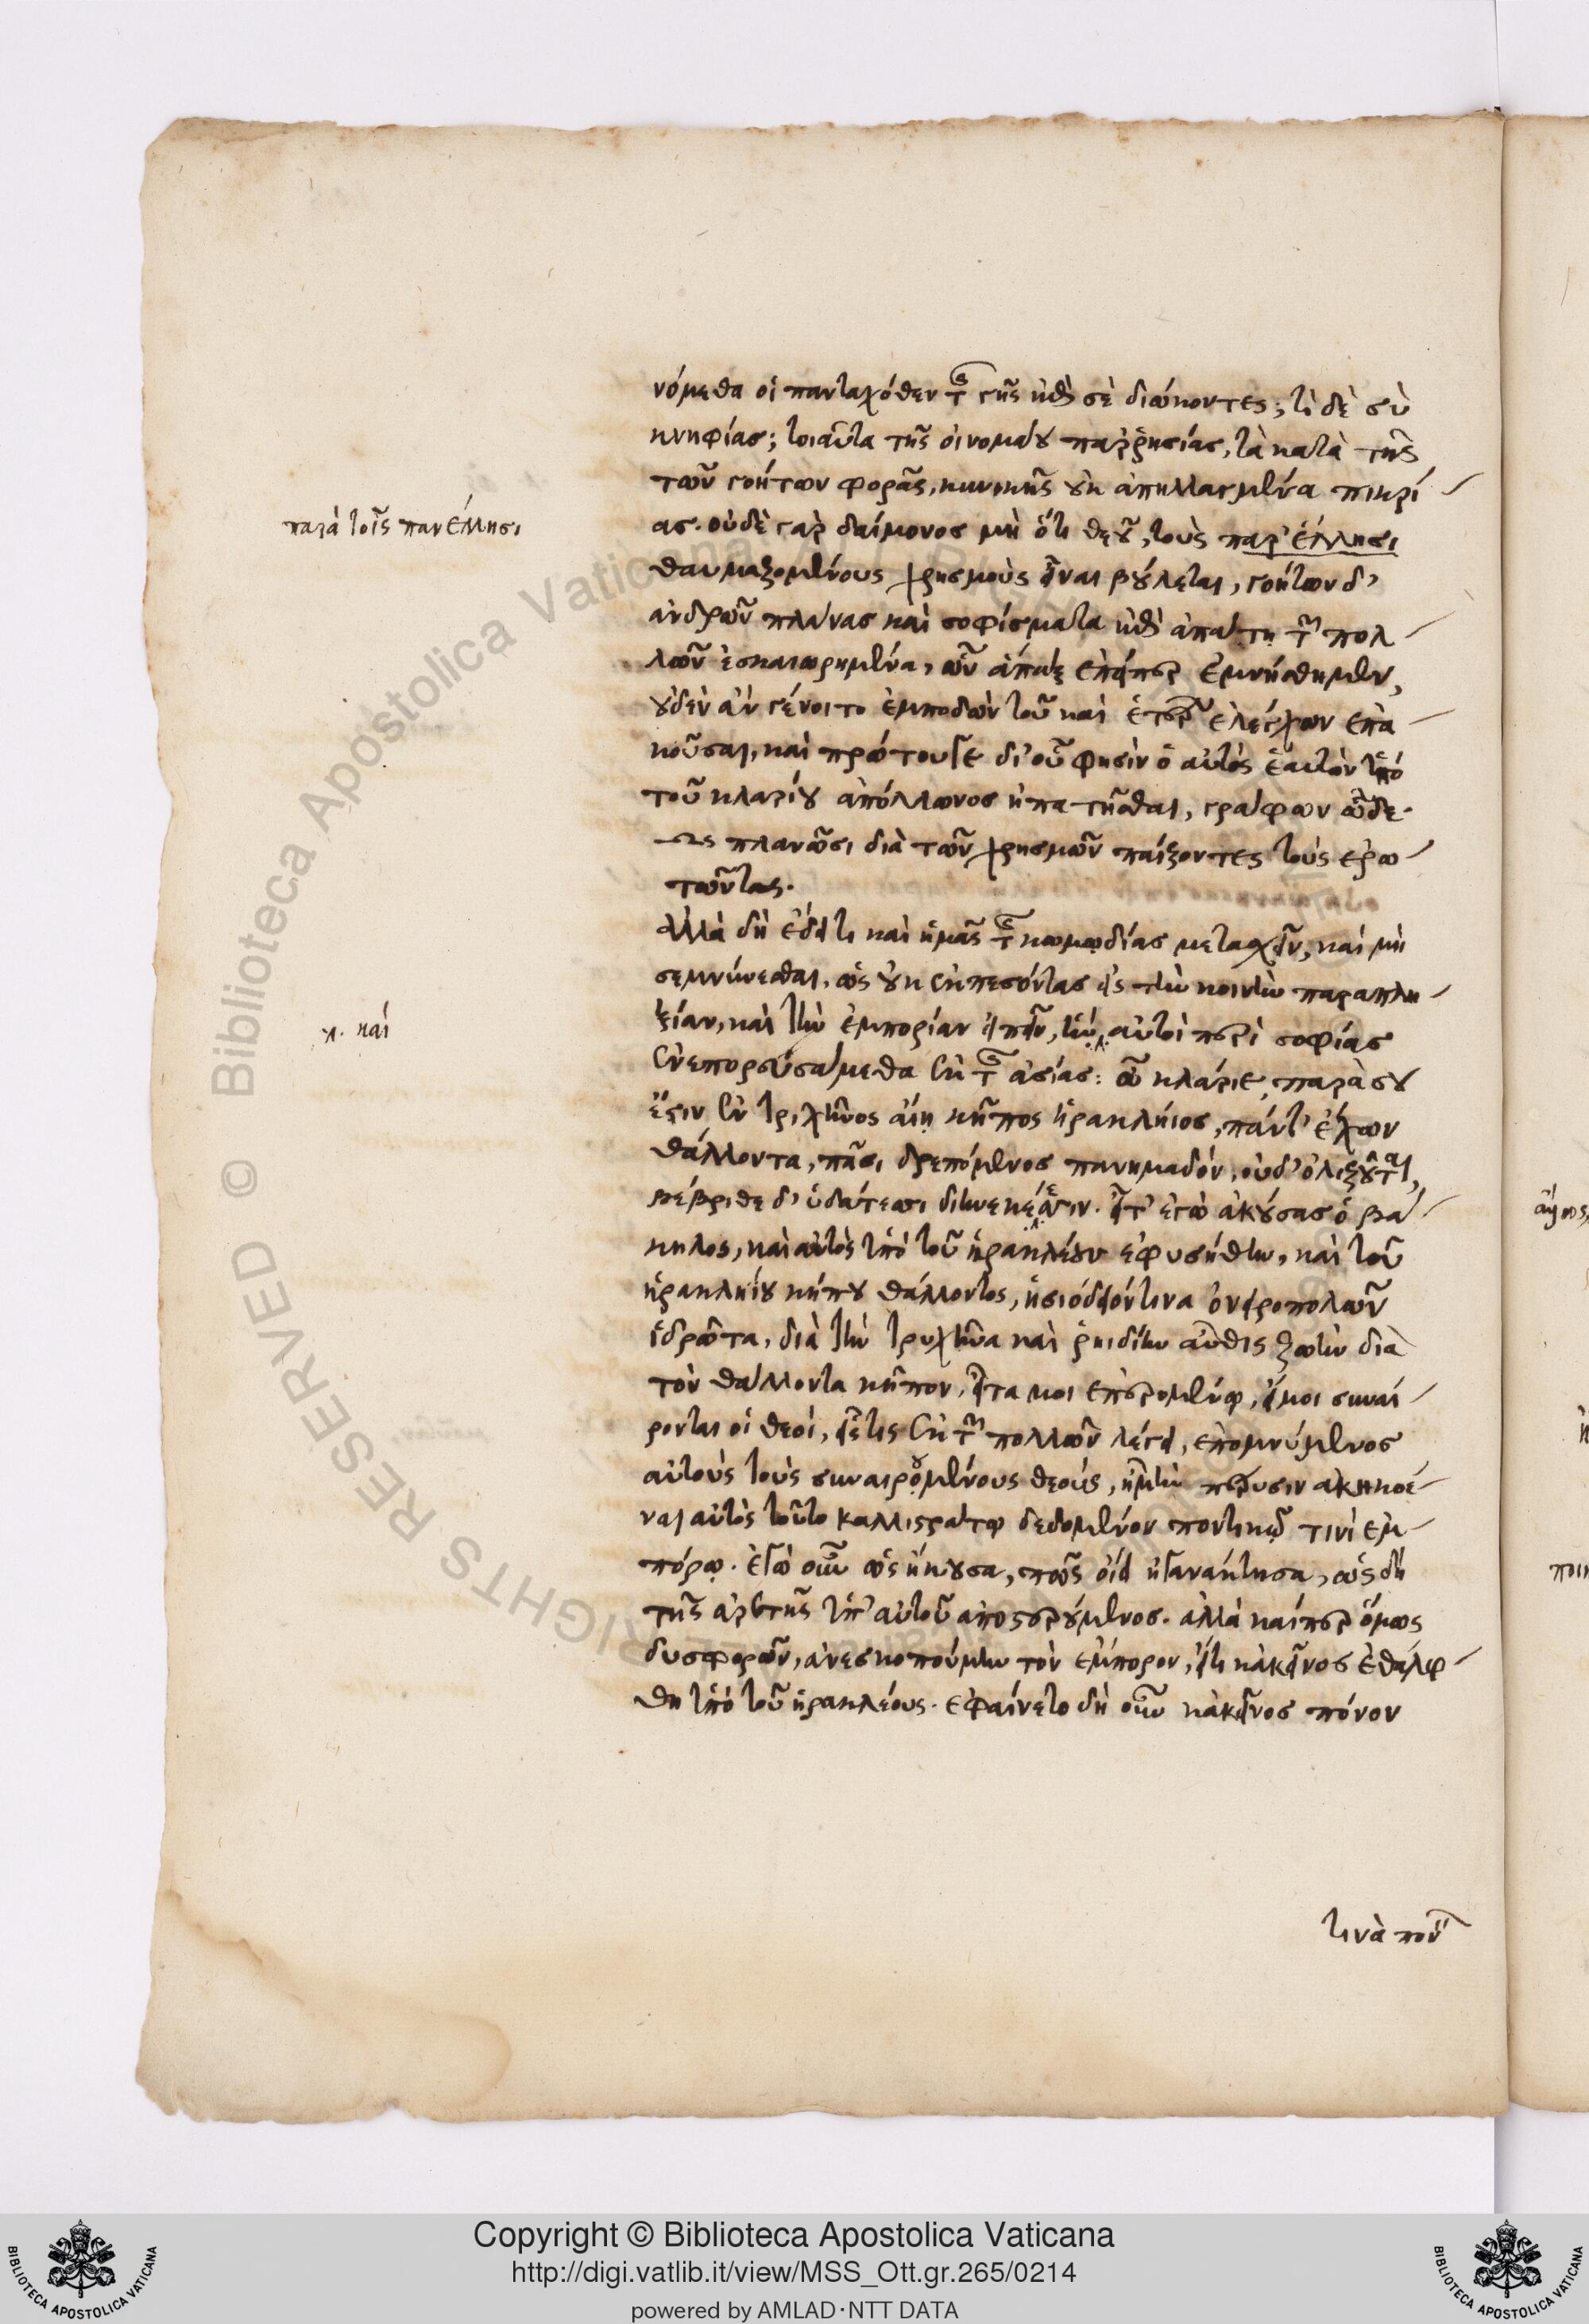 νόμεθα οἱ πανταχόθεν τῆς γῆς ἐπὶ σὲ διώκοντες; τί δὲ σὺ
κνηφίας; τοιαῦτα τῆς οἰνομάου παῤῥησίας, τὰ κατὰ τῆς
τῶν γοήτων φορᾶς, κυνικῆς οὐκ ἀπηλλαγμένα πικρί
ας. οὐδὲ γὰρ δαίμονος μὴ ὅτι θεοῦ, τοὺς παρ' ἕλλησι
παρὰ τοῖς πανέλλησι
θαυμαζομένους χρησμοὺς εἶναι βούλεται, γοήτων δ'
ἀνδρῶν πλάνας καὶ σοφίσματα ἐπὶ ἀπάτῃ τῶν πολ
λῶν ἐσκαιωρημένα, ὧν ἅπαξ ἐπείπερ ἐμνήσθημεν,
οὐδὲν ἂν γένοιτο ἐμποδὼν τοῦ καὶ ἑτέρων ἐλέγχων ἐπα
κοῦσαι, καὶ πρώτου γε δι' οὗ φησὶν ὁ αὐτὸς ἑαυτὸν ὑπὸ
τοῦ κλαρίου ἀπόλλωνος ἠπατῆσθαι, γράφων ὧδε.
ὡς πλανῶσι διὰ τῶν χρησμῶν παίζοντες τοὺς ἐρω
τῶντας.
ἀλλὰ δὴ ἔδει τι καὶ ἡμᾶς τῆς κωμωδίας μετασχεῖν, καὶ μὴ
σεμνύνεσθαι, ὡς οὐκ ἐκπεσόντας εἰς τὴν κοινὴν παραπλη
ξίαν, καὶ τὴν ἐμπορίαν εἰπεῖν, ἣν αὐτοὶ περὶ σοφίας
λ. καὶ
ἐνεπορευσάμεθα ἐκ τῆς ἀσίας: ὦ κλάριε, παρὰ σοῦ
ἔστιν ἐν τριχῖνος αἴῃ κῆπος ἡρακλήιος, πάντ' ἔχων
θάλλοντα, πᾶσι δρεπόμενος πανημαδόν, οὐδ' ὀλιζοῦται,
βέβριθε δ' ὑδάτεσσι διηνεκέεσσιν. εἶτ' ἐγὼ ἀκούσας ὁ βά
κηλος, καὶ αὐτὸς ὑπὸ τοῦ ἡρακλέου ἐφυσήθην, καὶ τοῦ
ἡρακληίου κήπου θάλλοντος, ἡσιόδειόν τινα ὀνειροπολῶν
ἱδρῶτα, διὰ τὴν τρυχῖνα καὶ ῥηιδίην αὖθις ζωὴν διὰ
τὸν θάλλοντα κῆπον, εἶτα μοι ἐπερομένῳ, εἴ μοι συναί
ρονται οἱ θεοί, εἷς τις ἐκ τῶν πολλῶν λέγει, ἐπομνύμενος
αὐτοὺς τοὺς συναιρομένους θεούς, ἦ μὴν πέρυσιν ἀκηκοέ
ναι αὐτὸς τοῦτο καλλιστράτῳ δεδομένον ποντικῷ τινὶ ἐμ
πόρῳ. ἐγὼ οὖν ὡς ἤκουσα, πῶς οἴει ἠγανάκτησα, ὡς δὴ
τῆς ἀρετῆς ὑπ' αὐτοῦ ἀποστερούμενος. ἀλλὰ καίπερ ὅμως
δυσφορῶν, ἀνεσκοπούμην τὸν ἔμπορον, εἴ τι κἀκεῖνος ἐθάλφ
θη ὑπὸ τοῦ ἡρακλέους. ἐφαίνετο δὴ οὖν κἀκεῖνος πόνον
τινὰ πον
Copyright © Biblioteca Apostolica Vaticana
http://digi.vatlib.it/view/MSS_Ott.gr.265/0214
powered by AMLAD·NTT DATA